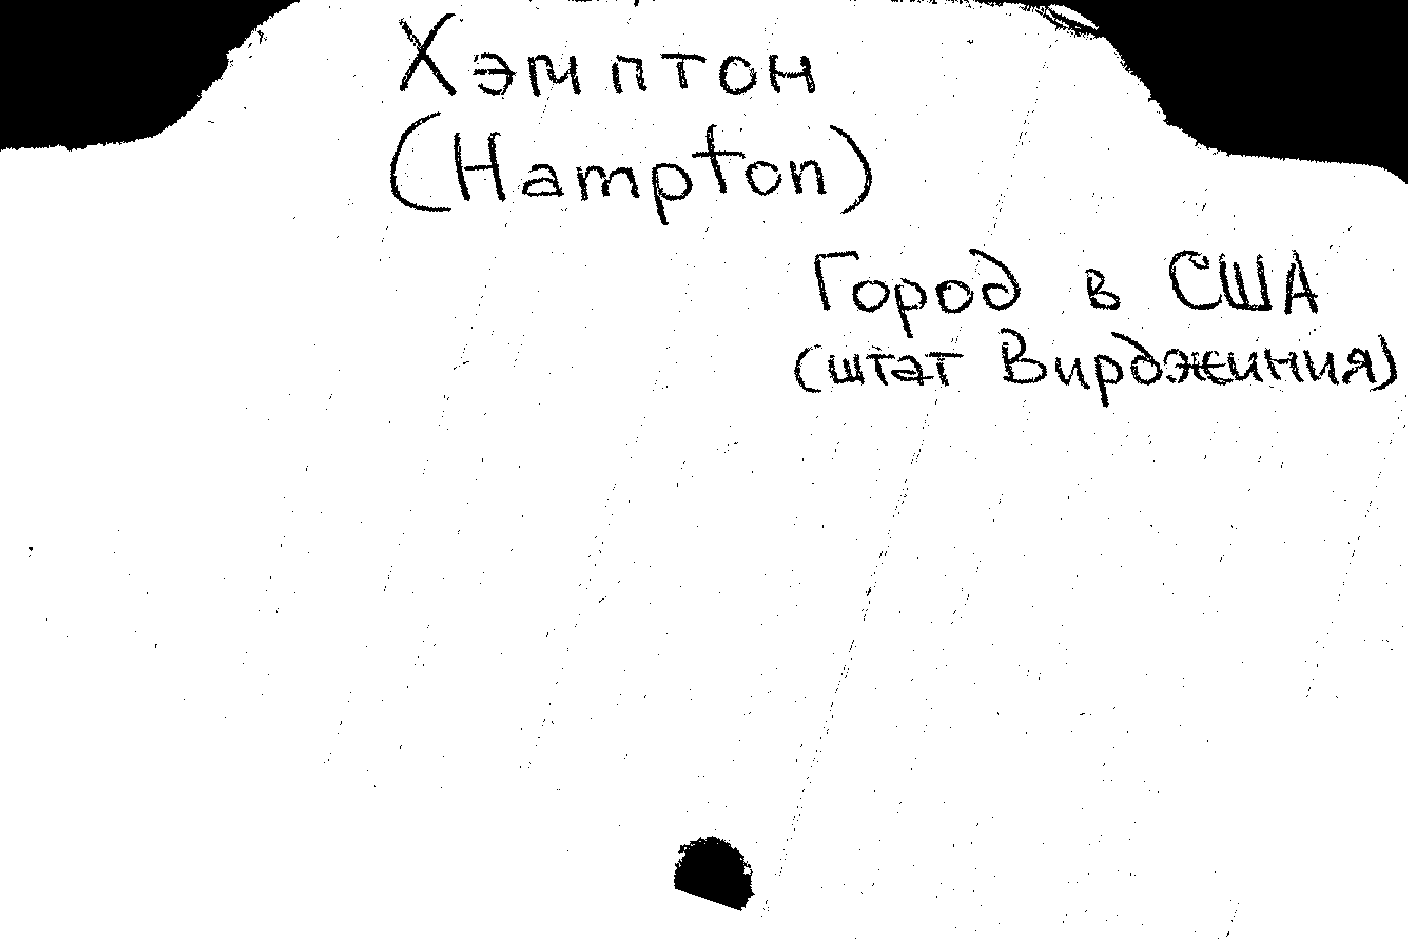 Хэмптон
(Hampton)
Город в США
(штат Вирджиния)